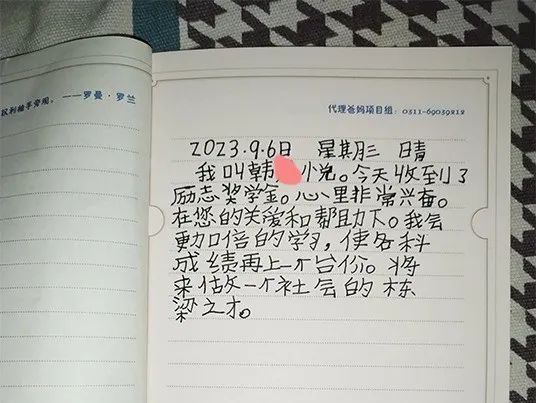 利袖手旁观。——罗曼·罗兰
代理爸妈项目组：0311-69039212
2023.9.6日 星期三 晴
我叫韩 悦。今天收到了
励志奖学金。心里非常兴奋。
在您的关爱和帮助下。我会
更加倍的学习，使各科
成绩再上一个台价。将
来做一个社会的栋
梁之才。